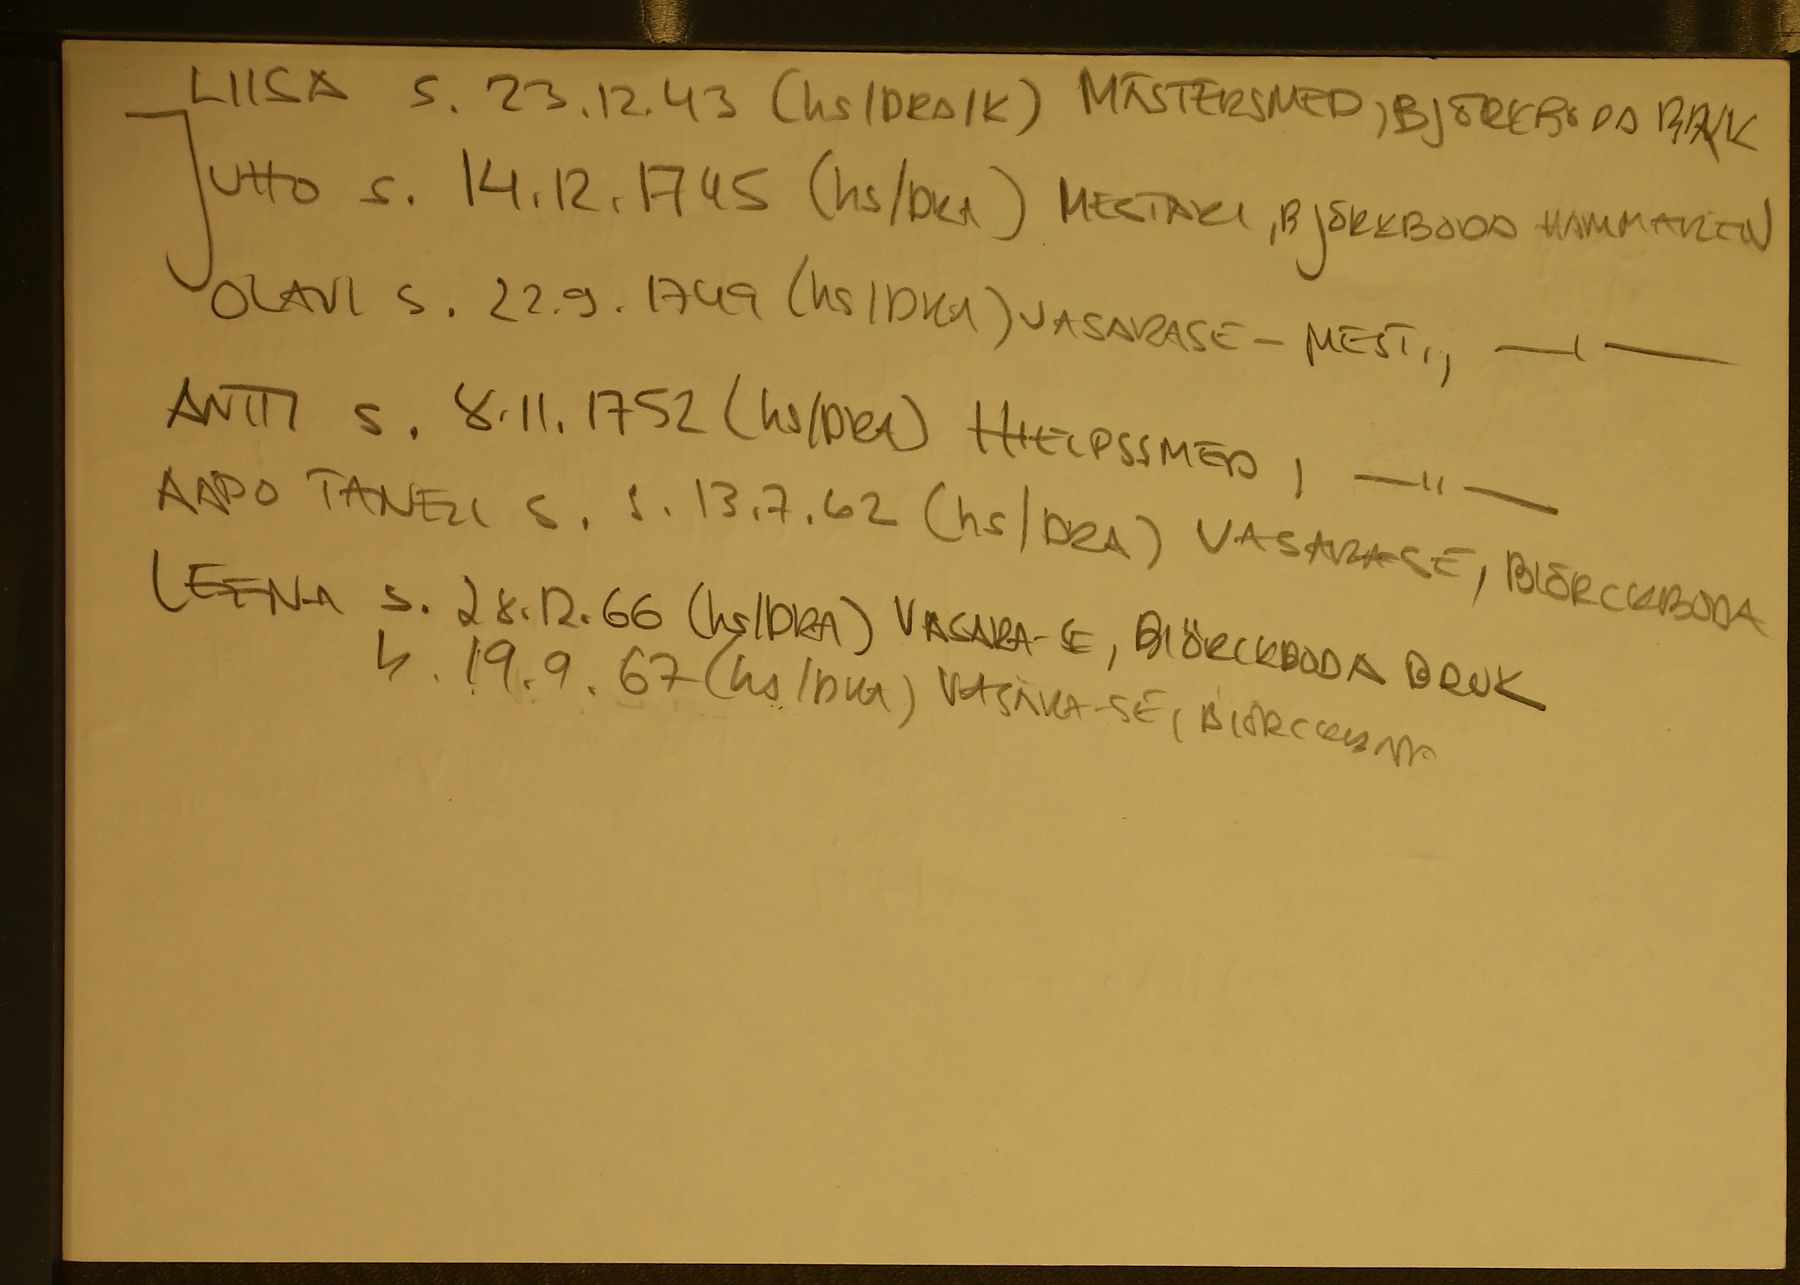 LIISA S. 23.12.43 (hs/DRA/K) MÄSTERSMED, BJÖRKBODA BRUK
JUHO S. 14.12.1745 (hs/DRA) MESTARI, BJÖRKBODA HAMMAREN
OLAVI S. 22.9.1749 (hs/DRA) VASARASE-MEST., —"—
ANTTI S. 8.11.1752 (hs/DRA) HIELPSSMED, —"—
AAPO TANELI S. S. 13.7.62 (hs/DRA) VASARASE, BIÖRCKBODA
LEENA S. 28.12.66 (hs/DRA) VASARA-SE, BIÖRCKBODA BRUK
h. 19.9.67 (hs/DRA) VASARA-SE,